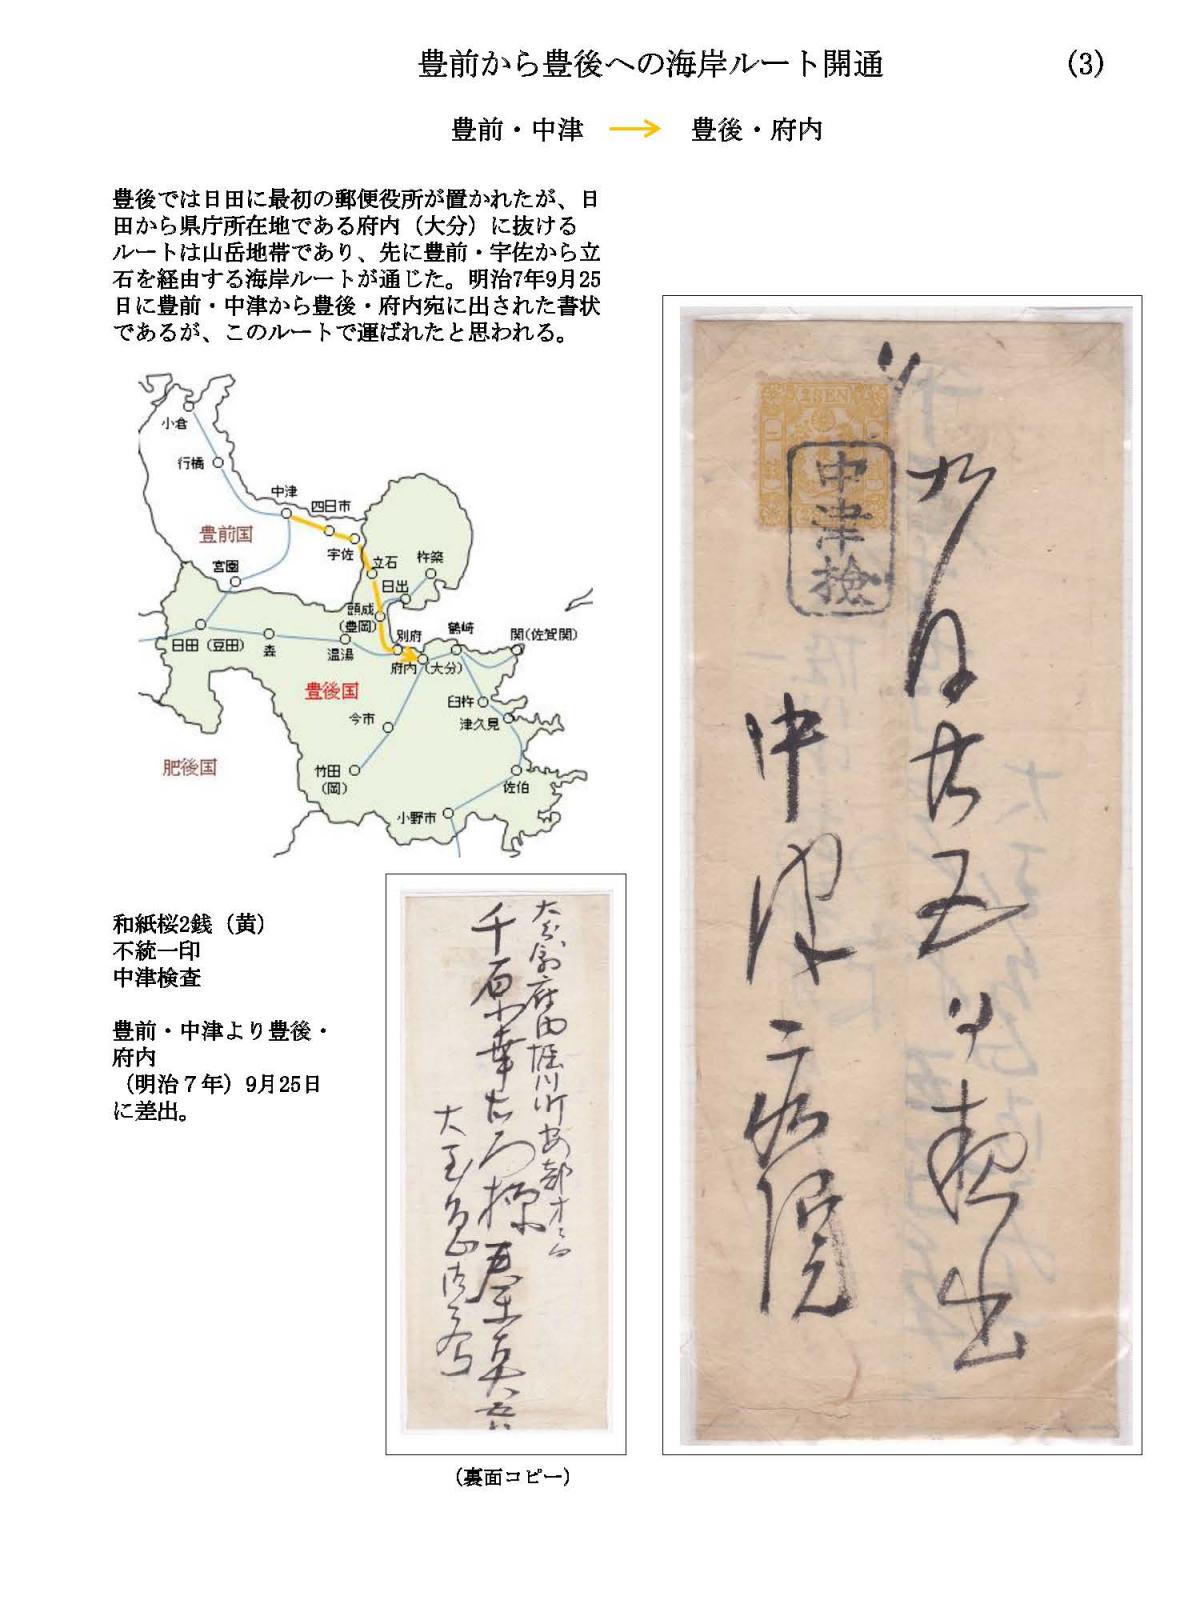 豊前から豊後への海岸ルート開通
(3)
豊前・中津 → 豊後・府内
豊後では日田に最初の郵便役所が置かれたが、日
田から県庁所在地である府内（大分）に抜ける
ルートは山岳地帯であり、先に豊前・宇佐から立
石を経由する海岸ルートが通じた。明治7年9月25
日に豊前・中津から豊後・府内宛に出された書状
であるが、このルートで運ばれたと思われる。
小倉
行橋
中津
四日市
豊前国
宇佐
宮園
立石
杵築
日出
頭成
(豊岡)
日田（豆田）
森
温湯
別府
鶴崎
関(佐賀関)
府内（大分）
豊後国
臼杵
今市
津久見
肥後国
竹田
(岡)
佐伯
小野市
和紙桜2銭（黄）
不統一印
中津検査
豊前・中津より豊後・
府内
（明治７年）9月25日
に差出。
2 SEN
中津検
九月廿五日
出
中津
病院
府内堀川町安部
千原幸
大
（裏面コピー）